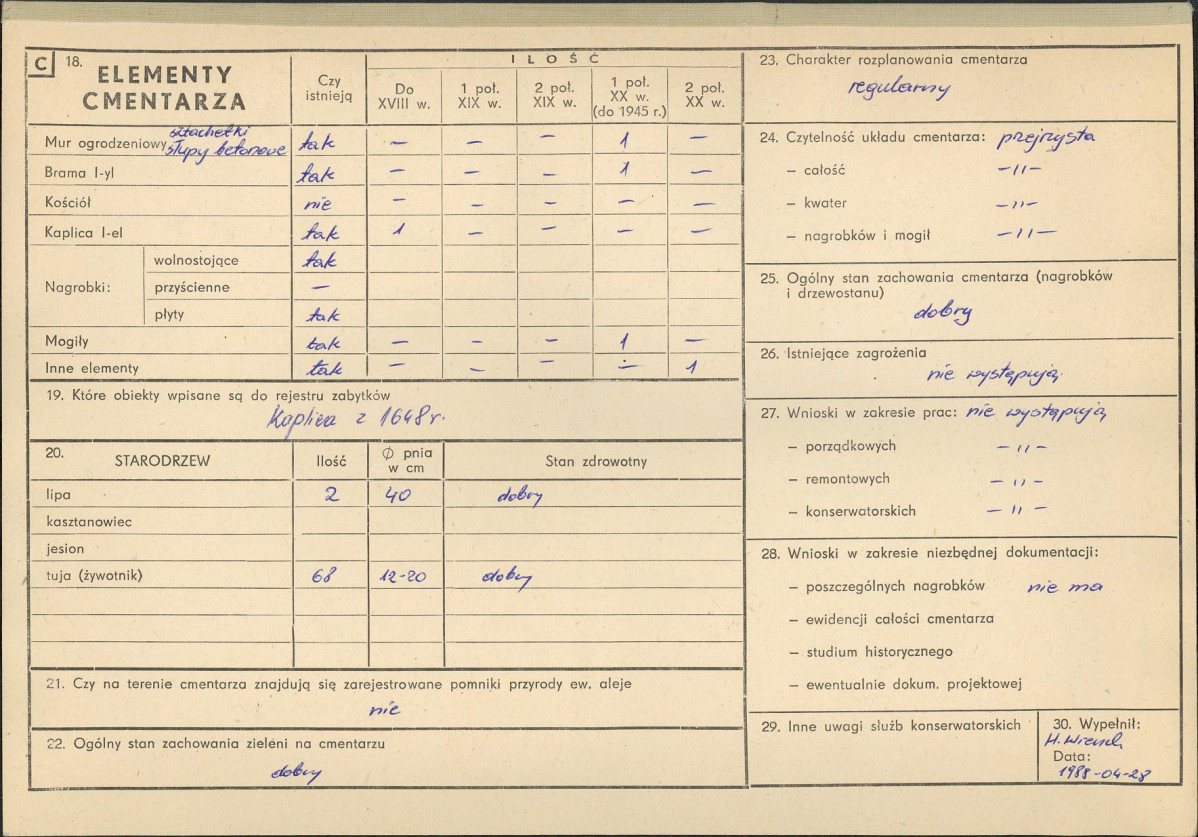 C 18. ELEMENTY CMENTARZA
Czy istnieją
ILOŚĆ
Do XVIII w.
1 poł. XIX w.
2 poł. XIX w.
1 poł. XX w. (do 1945 r.)
2 poł. XX w.
Mur ogrodzeniowy sztachetki słupy betonowe tak — — — 1 —
Brama I-yl tak — — — 1 —
Kościół nie — — — — —
Kaplica I-el tak 1 — — — —
Nagrobki:
wolnostojące tak
przyścienne —
płyty tak
Mogiły tak — — — 1 —
Inne elementy tak — — — — 1
19. Które obiekty wpisane są do rejestru zabytków
Kaplica z 1648 r.
20. STARODRZEW Ilość Ø pnia w cm Stan zdrowotny
lipa 2 40 dobry
kasztanowiec
jesion
tuja (żywotnik) 68 12-20 dobry
21. Czy na terenie cmentarza znajdują się zarejestrowane pomniki przyrody ew. aleje
nie
22. Ogólny stan zachowania zieleni na cmentarzu
dobry
23. Charakter rozplanowania cmentarza
regularny
24. Czytelność układu cmentarza: przejrzysta
– całość —11—
– kwater —11—
– nagrobków i mogił —11—
25. Ogólny stan zachowania cmentarza (nagrobków
i drzewostanu)
dobry
26. Istniejące zagrożenia
nie występują
27. Wnioski w zakresie prac: nie występują
– porządkowych —11—
– remontowych —11—
– konserwatorskich —11—
28. Wnioski w zakresie niezbędnej dokumentacji:
– poszczególnych nagrobków nie ma
– ewidencji całości cmentarza
– studium historycznego
– ewentualnie dokum. projektowej
29. Inne uwagi służb konserwatorskich
30. Wypełnił:
H.
Data:
1988-04-28